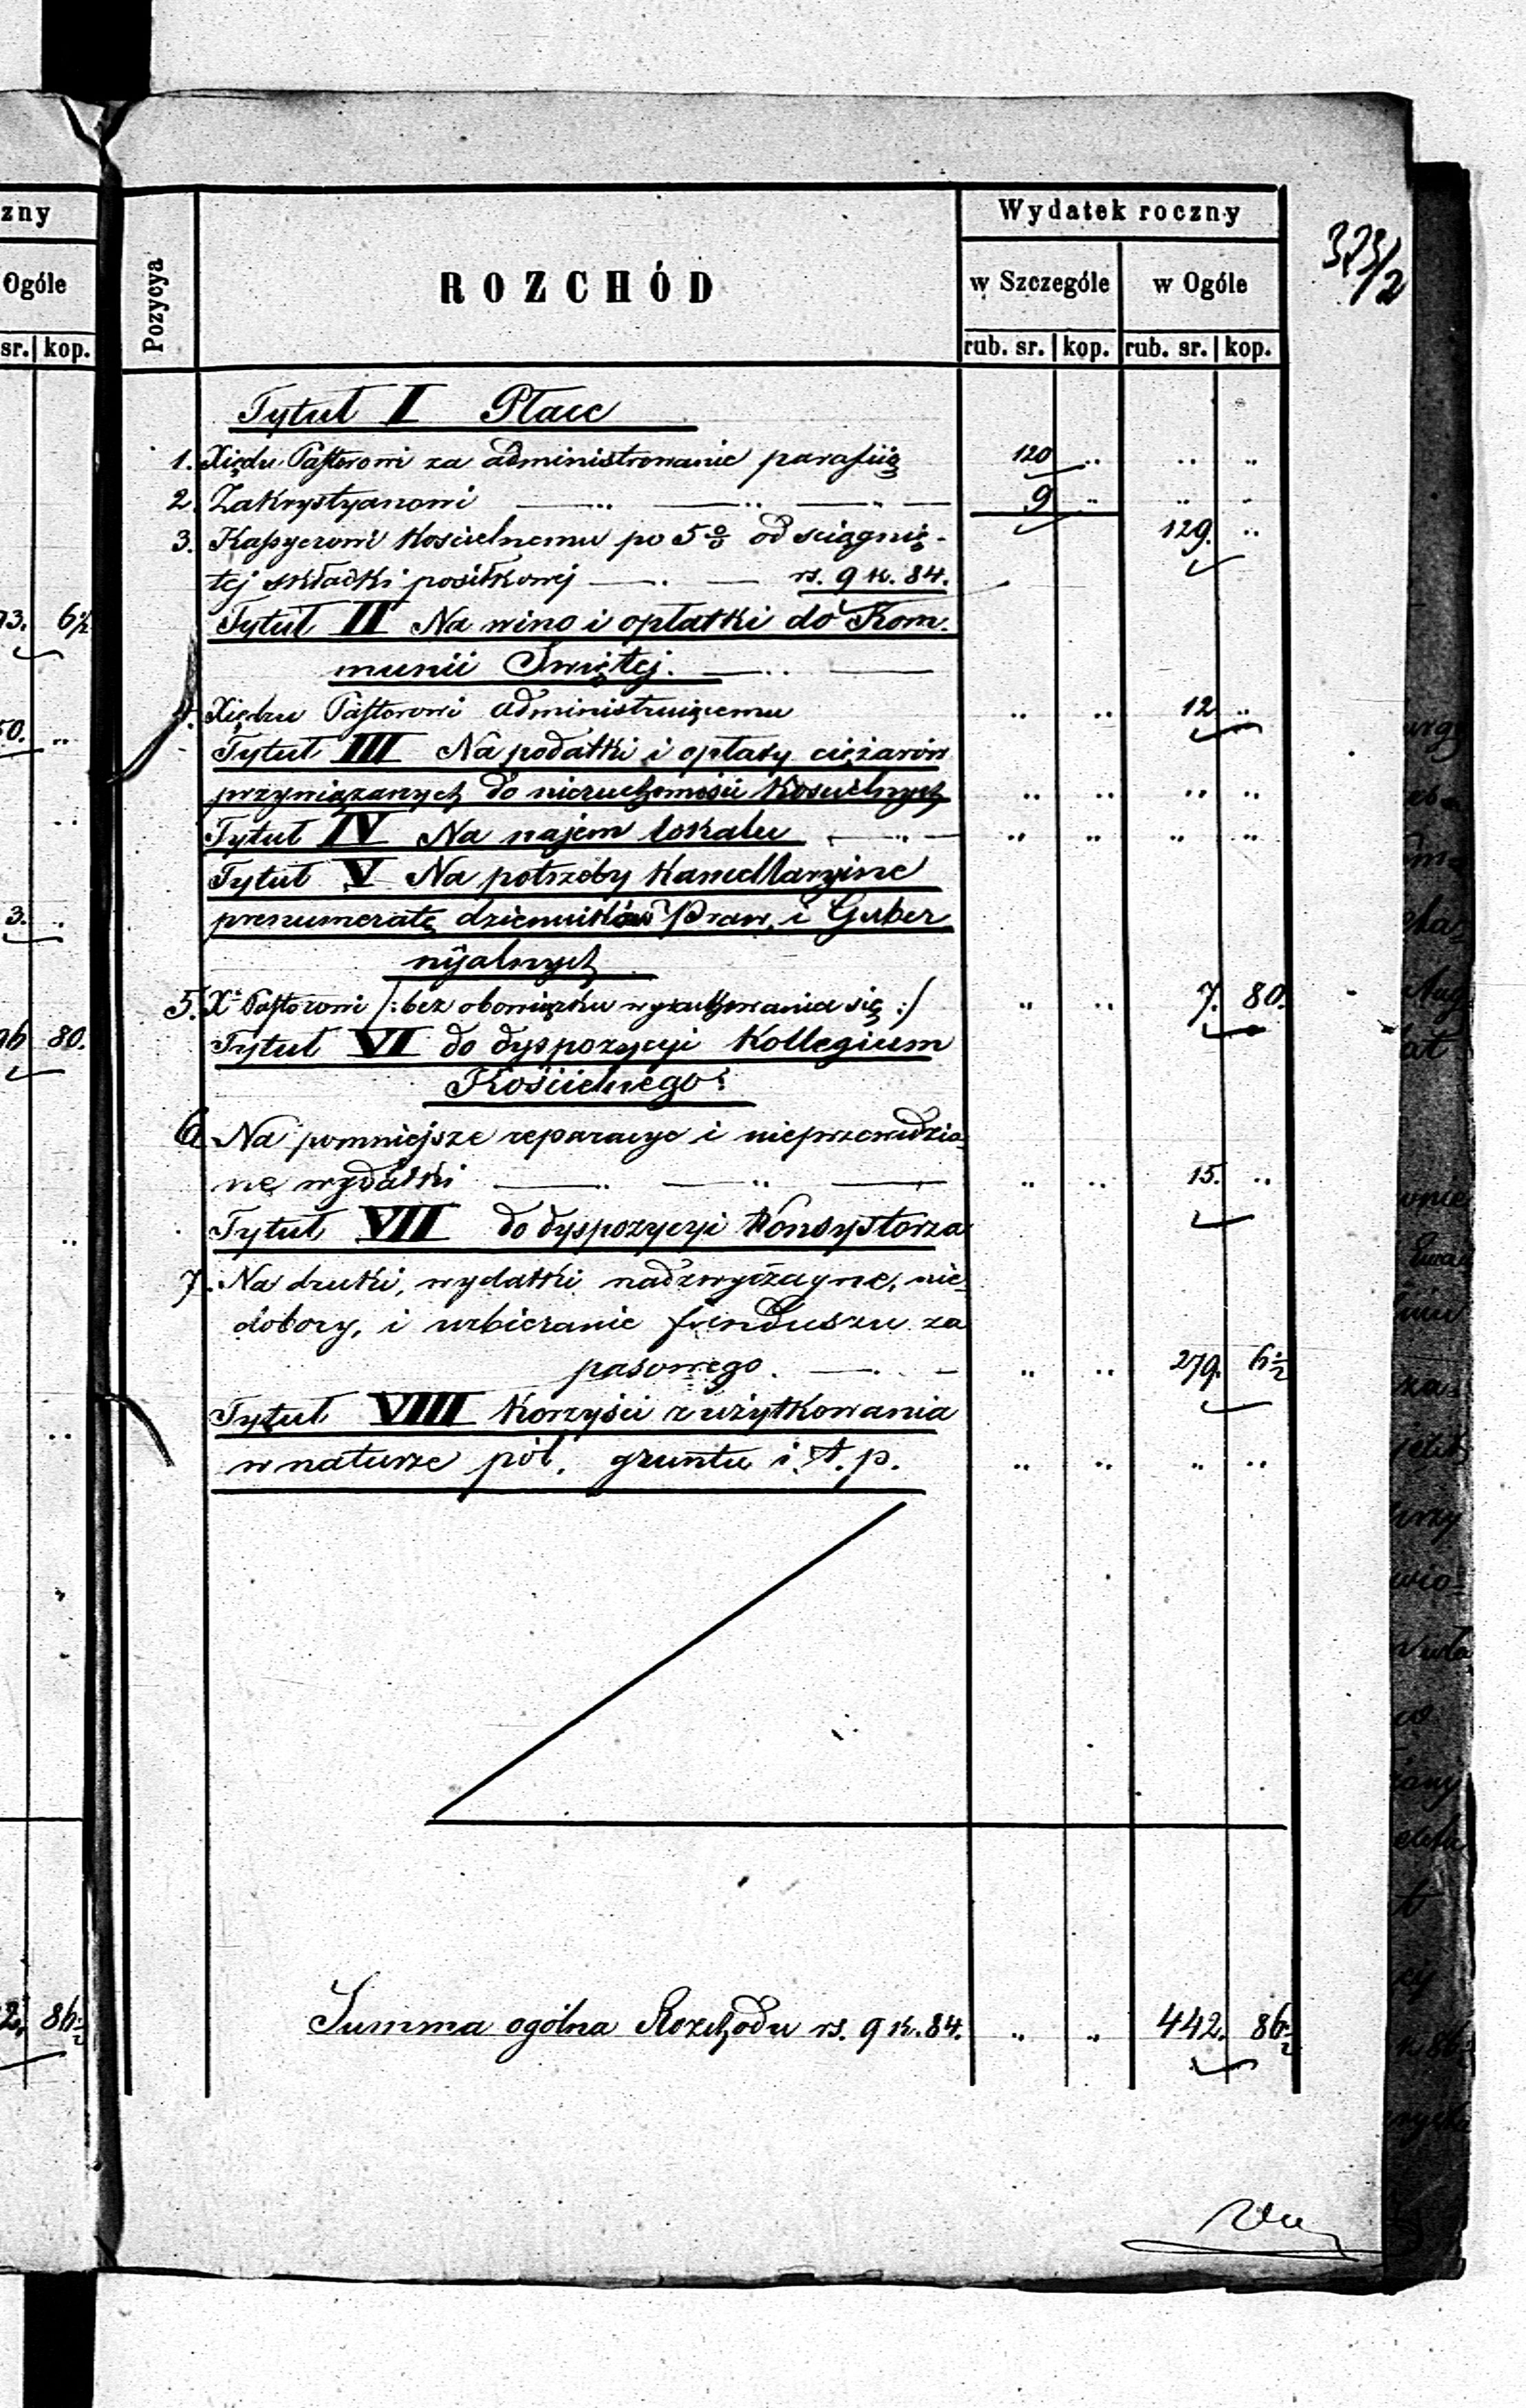 zny
Ogóle
sr. kop.
93. 6½
50. ..
3. ..
96 80.
2. 86½
373/2
Pozycya
ROZCHÓD
Wydatek roczny
w Szczególe w Ogóle
rub. sr. kop. rub. sr. kop.
Tytuł I Płace
1. Xiędzu Pastorowi za administrowanie parafiią 120 .. .. ..
2. Zakrystyanowi — .. — .. — .. — 9 .. .. ..
3. Kassyerowi Kościelnemu po 5% od sciągnię- 129. ..
tej składki posiłkowej — .. — rs. 9 k. 84.
Tytuł II Na wino i opłatki do Kom-
munii Swiętej. — .. —
4. Xiędzu Pastorowi administruiącemu .. .. 12 ..
Tytuł III Na podatki i opłaty ciężarów
przywiązanych do nieruchomości Kościelnych .. .. .. ..
Tytuł IV Na najem lokalu — .. — .. .. .. ..
Tytuł V Na potrzeby Kancellaryine
prenumeratę dzienników Praw. i Guber
nijalnych
5. Xᵈ Pastorowi /: bez obowiązku wyrachowania się :/ .. .. 7. 80.
Tytuł VI do dyspozycyi Kollegium
Kościelnego:
6. Na pomniejsze reparacye i nieprzewidzia-
ne wydatki — .. — .. — .. .. 15. ..
Tytuł VII do dyspozycyi Konsystorza
7. Na druki, wydatki nadzwyczayne, nie-
dobory, i uzbieranie funduszu za
pasowego. — .. — .. .. 279. 6½
Tytuł VIII Korzyści z użytkowania
w naturze pół, gruntu i. t. p. .. .. .. ..
Summa ogólna Rozchodu rs. 9 k. 84. .. .. 442. 86½